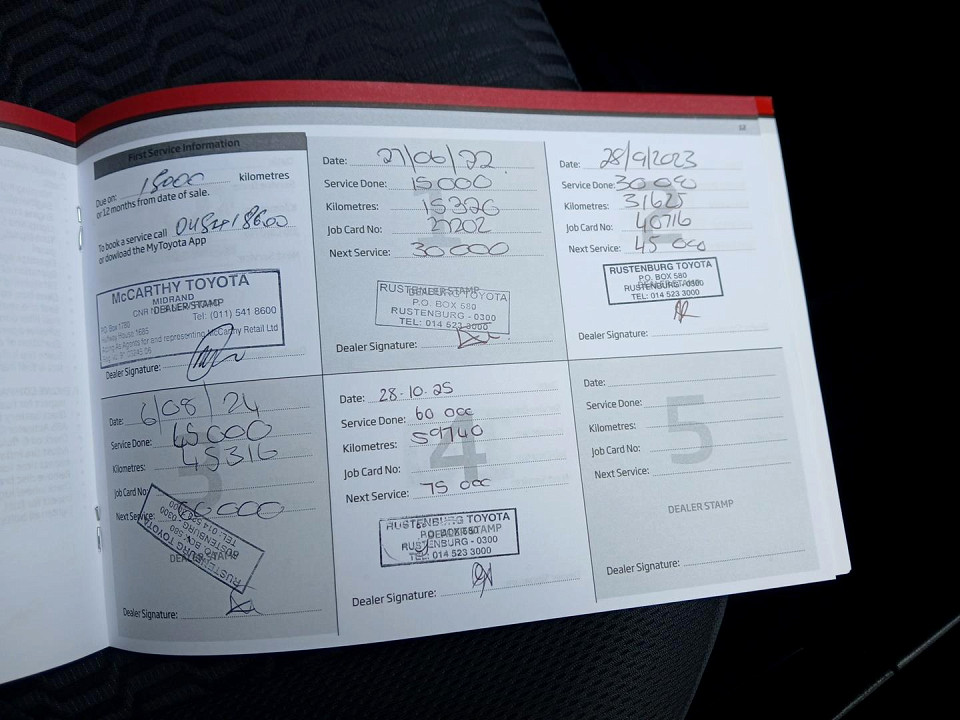 First Service Information
Due on: 15000 kilometres
or 12 months from date of sale.
To book a service call
or dowload the MyToyota App
McCARTHY TOYOTA
MIDRAND
DEALER STAMP
Tel: (011) 541 8600
P.O. Box 1780
Halfway House 1685
Acting As Agents for and representing McCarthy Retail Ltd
Dealer Signature:
Date: 27/06/22
Service Done: 15000
Kilometres: 15326
Job Card No: 27202
Next Service: 30000
RUSTENBURG TOYOTA
DEALER STAMP
P.O. BOX 580
RUSTENBURG - 0300
TEL: 014 523 3000
Dealer Signature:
Date: 28/9/2023
Service Done: 30000
Kilometres: 31625
Job Card No: 40716
Next Service: 45000
RUSTENBURG TOYOTA
P.O. BOX 580
DEALER STAMP
RUSTENBURG - 0300
TEL: 014 523 3000
Dealer Signature:
3
Date: 6/08/24
Service Done: 45000
Kilometres: 45316
Job Card No:
Next Service: 60000
RUSTENBURG TOYOTA
P.O. BOX 580
RUSTENBURG - 0300
TEL: 014 523 3000
DEALER STAMP
Dealer Signature:
4
Date: 28.10.25
Service Done: 60 000
Kilometres: 59740
Job Card No:
Next Service: 75 000
RUSTENBURG TOYOTA
P.O. BOX 580
DEALER STAMP
RUSTENBURG - 0300
TEL: 014 523 3000
Dealer Signature:
5
Date:
Service Done:
Kilometres:
Job Card No:
Next Service:
DEALER STAMP
Dealer Signature: